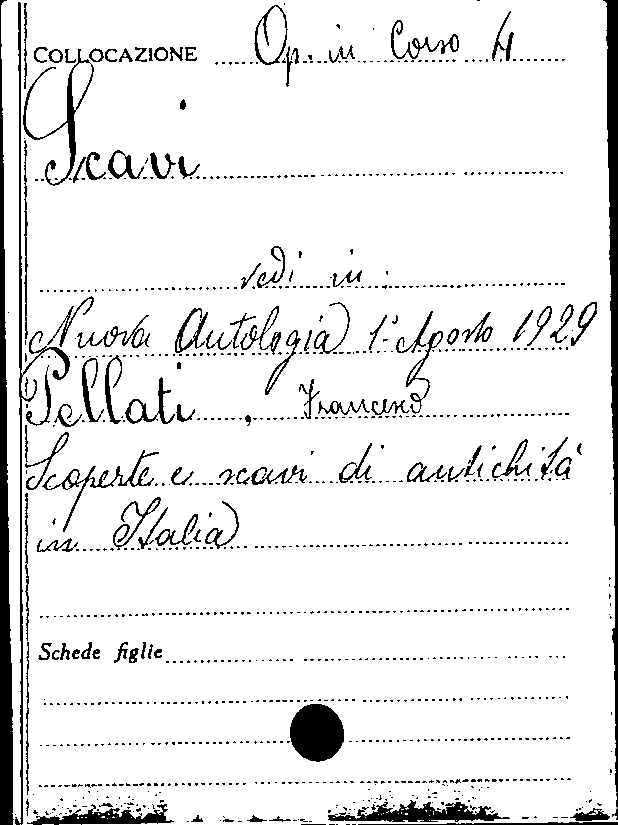 COLLOCAZIONE Op. in Corso 4
Scavi
vedi in:
Nuova Antologia 1° Agosto 1929
Pellati, Francesco
Scoperte e scavi di antichità
in Italia
Schede figlie